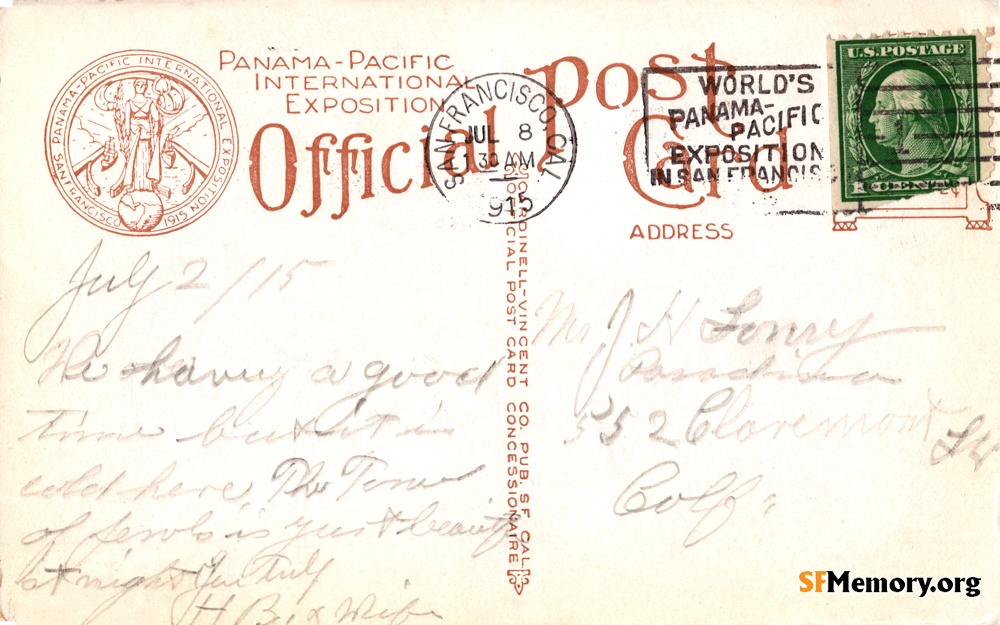 PANAMA-PACIFIC
INTERNATIONAL
EXPOSITION
Official Post Card
PANAMA-PACIFIC INTERNATIONAL EXPOSITION
SAN FRANCISCO 1915
SAN FRANCISCO, CAL
JUL 8
130 AM
1915
WORLD'S
PANAMA-
PACIFIC
EXPOSITION
IN SAN FRANCIS
U.S. POSTAGE
ADDRESS
CARDINELL-VINCENT CO. PUB. S.F. CAL.
OFFICIAL POST CARD CONCESSIONAIRE
July 2/15
having a good
time but it is
cold here. The Tower
of Jewels is just
at night
H B. & Wife
Mr J. H
Pasadena
552 Claremont St
Calf.
SFMemory.org